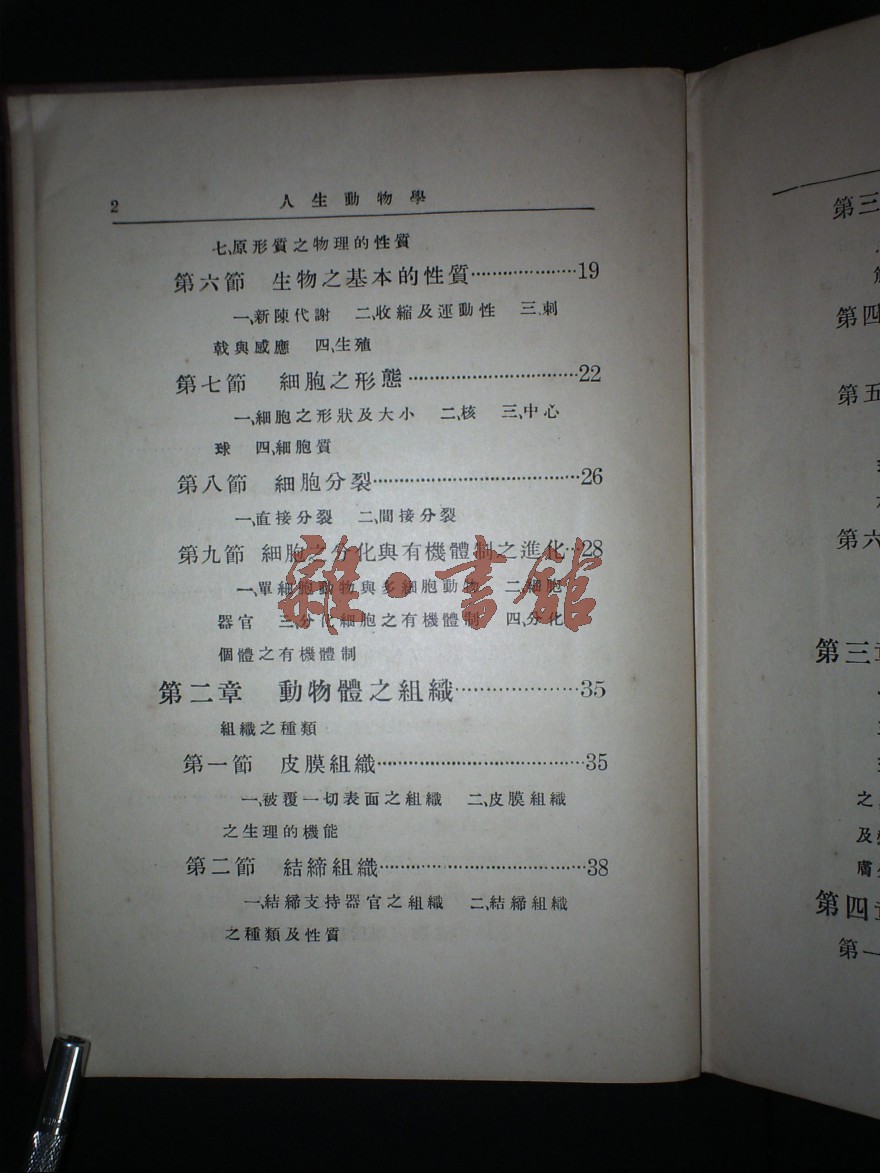 2
人生動物學
七、原形質之物理的性質
第六節 生物之基本的性質····················19
一、新陳代謝 二、收縮及運動性 三、刺
戟與感應 四、生殖
第七節 細胞之形態································22
一、細胞之形狀及大小 二、核 三、中心
球 四、細胞質
第八節 細胞分裂·······································26
一、直接分裂 二、間接分裂
第九節 細胞之分化與有機體制之進化···28
一、單細胞動物與多細胞動物 二、細胞
器官 三、分化細胞之有機體制 四、分化
個體之有機體制
第二章 動物體之組織····················35
組織之種類
第一節 皮膜組織·······································35
一、被覆一切表面之組織 二、皮膜組織
之生理的機能
第二節 結締組織·······································38
一、結締支持器官之組織 二、結締組織
之種類及性質
雜·書館
第三
第四
第五
第六
第三章
之
及
膚
第四章
第一